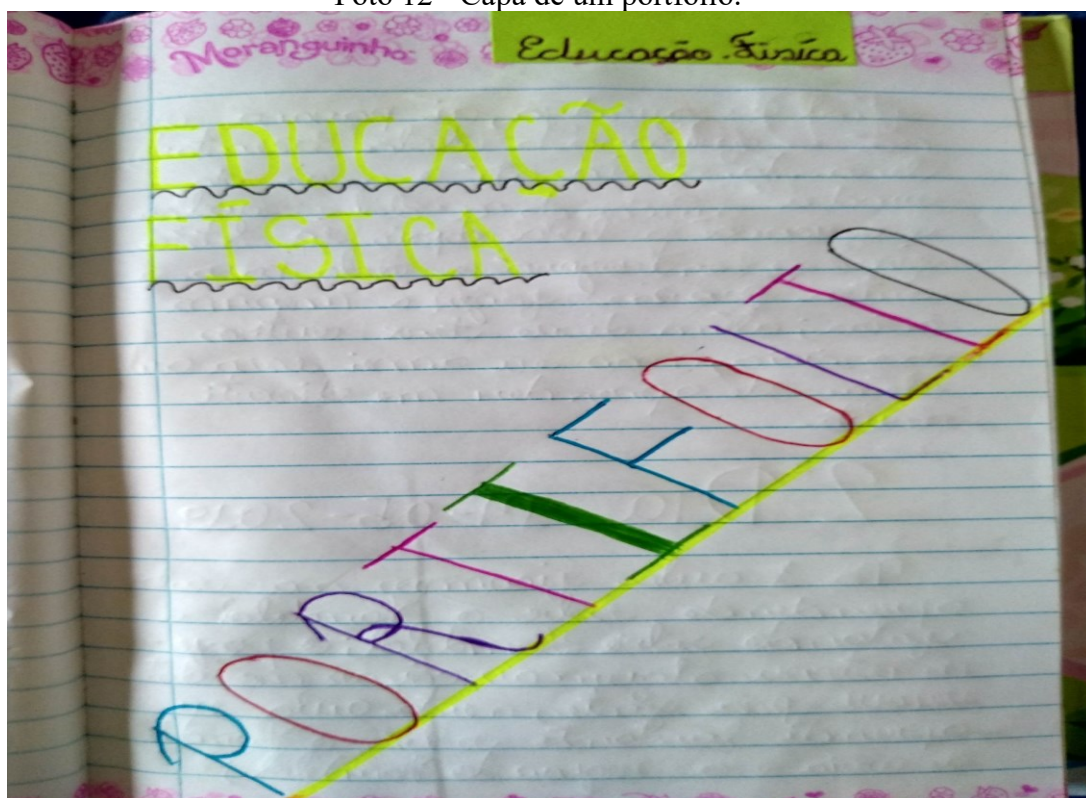 Foto 12 - Capa de um portfólio.
Moranguinho
Educação Física
EDUCAÇÃO
FÍSICA
PORTIFOLIO